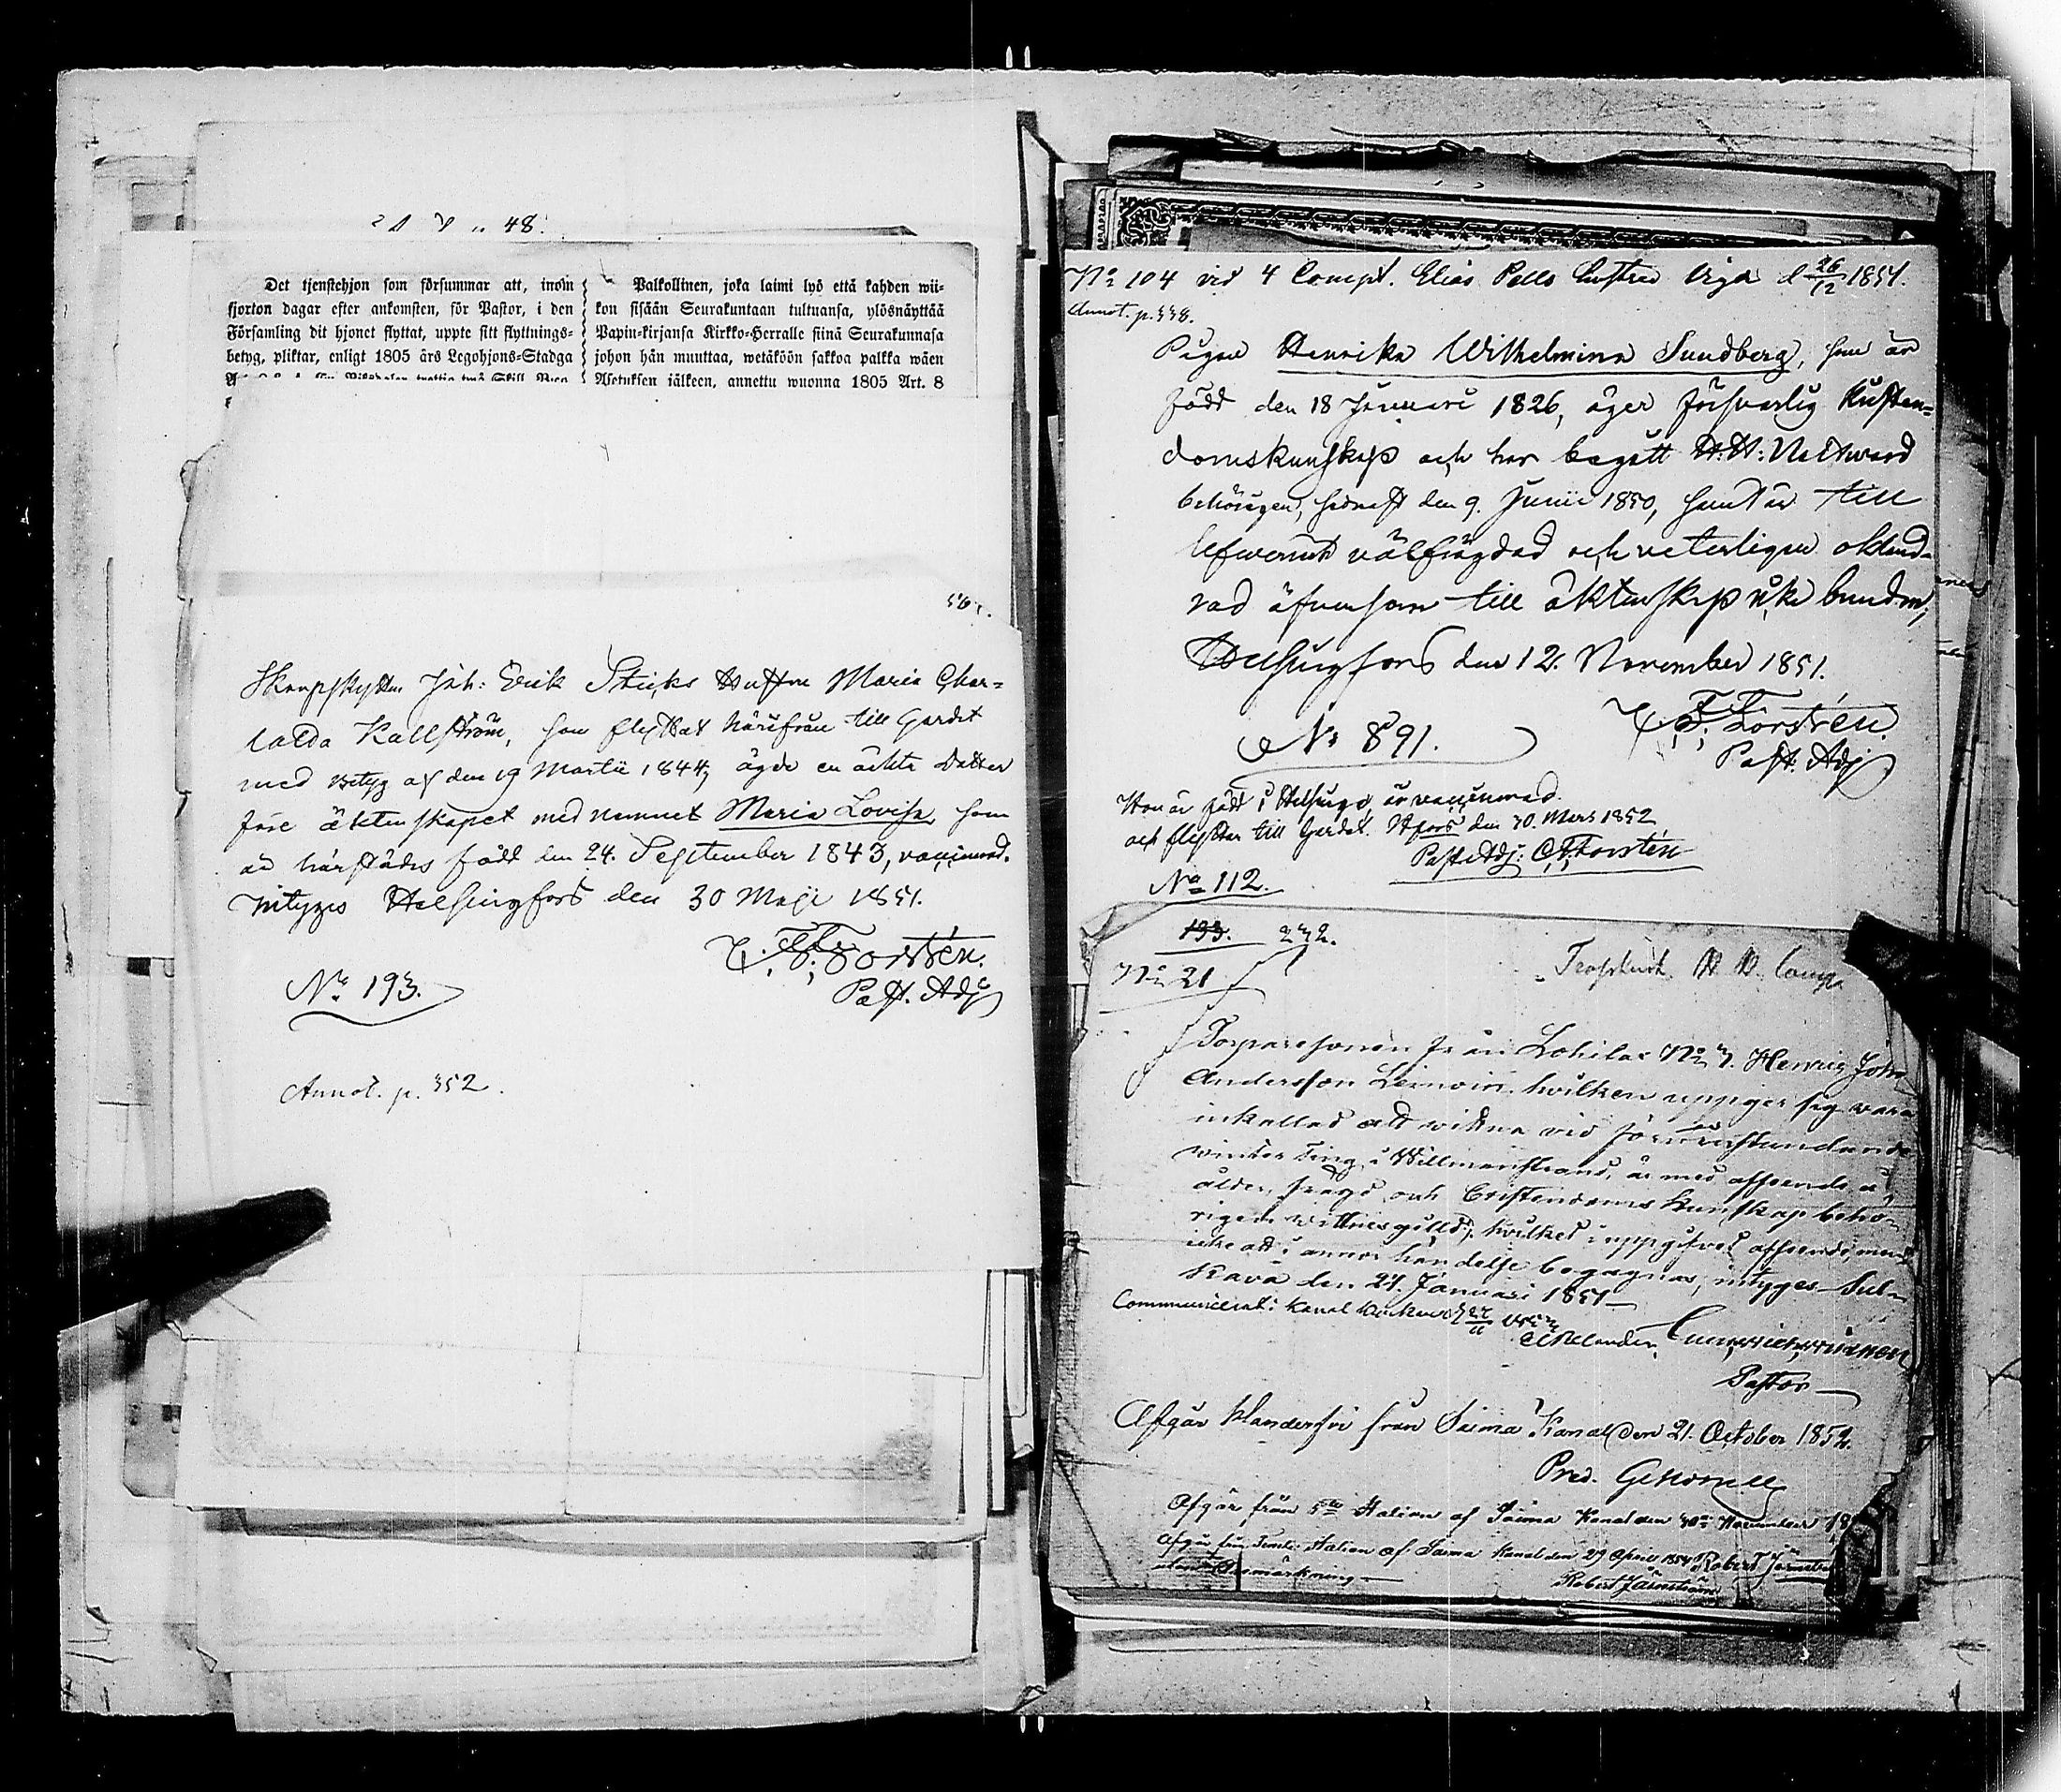 48.
Det tjenstehjon som försummar att, inom
fjorton dagar efter ankomsten, för Pastor, i den
Församling dit hjonet flyttat, uppte sitt flyttnings-
betyg, pliktar, enligt 1805 års Legohjons-Stadga
Palkollinen, joka laimi lyö että kahden wii-
kon sisään Seurakuntaan tultuansa, ylösnäyttää
Papin-kirjansa Kirkko-Herralle siinä Seurakunnasa
johon hän muuttaa, wetäköön sakkoa palkka wäen
Asetuksen jälkeen, annettu wuonna 1805 Art. 8
Skarpskytten Joh: Erik Sticks Hustru Maria Char-
lotta Kallström, som flyttat härifrån till Gardet
med betyg af den 19 Martii 1844, ägde en äkta Dotter
före äktenskapet med namnet Maria Lovisa, som
är härstädes född den 24. September 1843, vaccinerad.
intygas Helsingfors den 30 Maji 1851.
F. Forstén.
Past. Adj.
No 193.
Annot. p. 352.
No 104 vid 4 Compt. Elias Pells Hustru d 26/12 1851.
Annot. p. 338.
Pigan Henrika Wilhelmina Sundberg, som är
född den 18 Januari 1826, äger försvarlig Kristen-
domskunskap och har begått H.H. Nattward
behörigen, sednast den 9. Junii 1850, samt är till
lefwernet välfrägdad och veterligen okland-
rad äfvensom till äktenskap icke bunden,
Helsingfors den 12. November 1851.
F. Forstén.
Past. Adj.
No 891.
Hon är född i Helsingf, är vaccinerad
och flyttar till Gardet. Hfors den 30. Mars 1852
Past. Adj: Forstén
No 112.
193. 232.
No 21
Torparesonen från Lohila No 7. Henric Joh
Andersson Leinoin, hvilken uppger sig vara
inkallad att vittna vid förestundande
winter Ting i Willmanstrand, är med afseende å
ålder, frägd och Cristendoms Kunskap behö-
rigen wittnesgilld, hvilket i uppgifvet afseende, men
icke att i annor händelse begagnas, intyges. Sul-
kava den 21. Januari 1851
Pastor
Afgår från Saima Kanal den 21. October 1852.
Pred.
Afgår från 5te Station af Saima Kanal den 30de November 18
Afgår från Station af Saima Kanal den 29 April 1854 Robert
utan Anmärkning
Robert Järnström